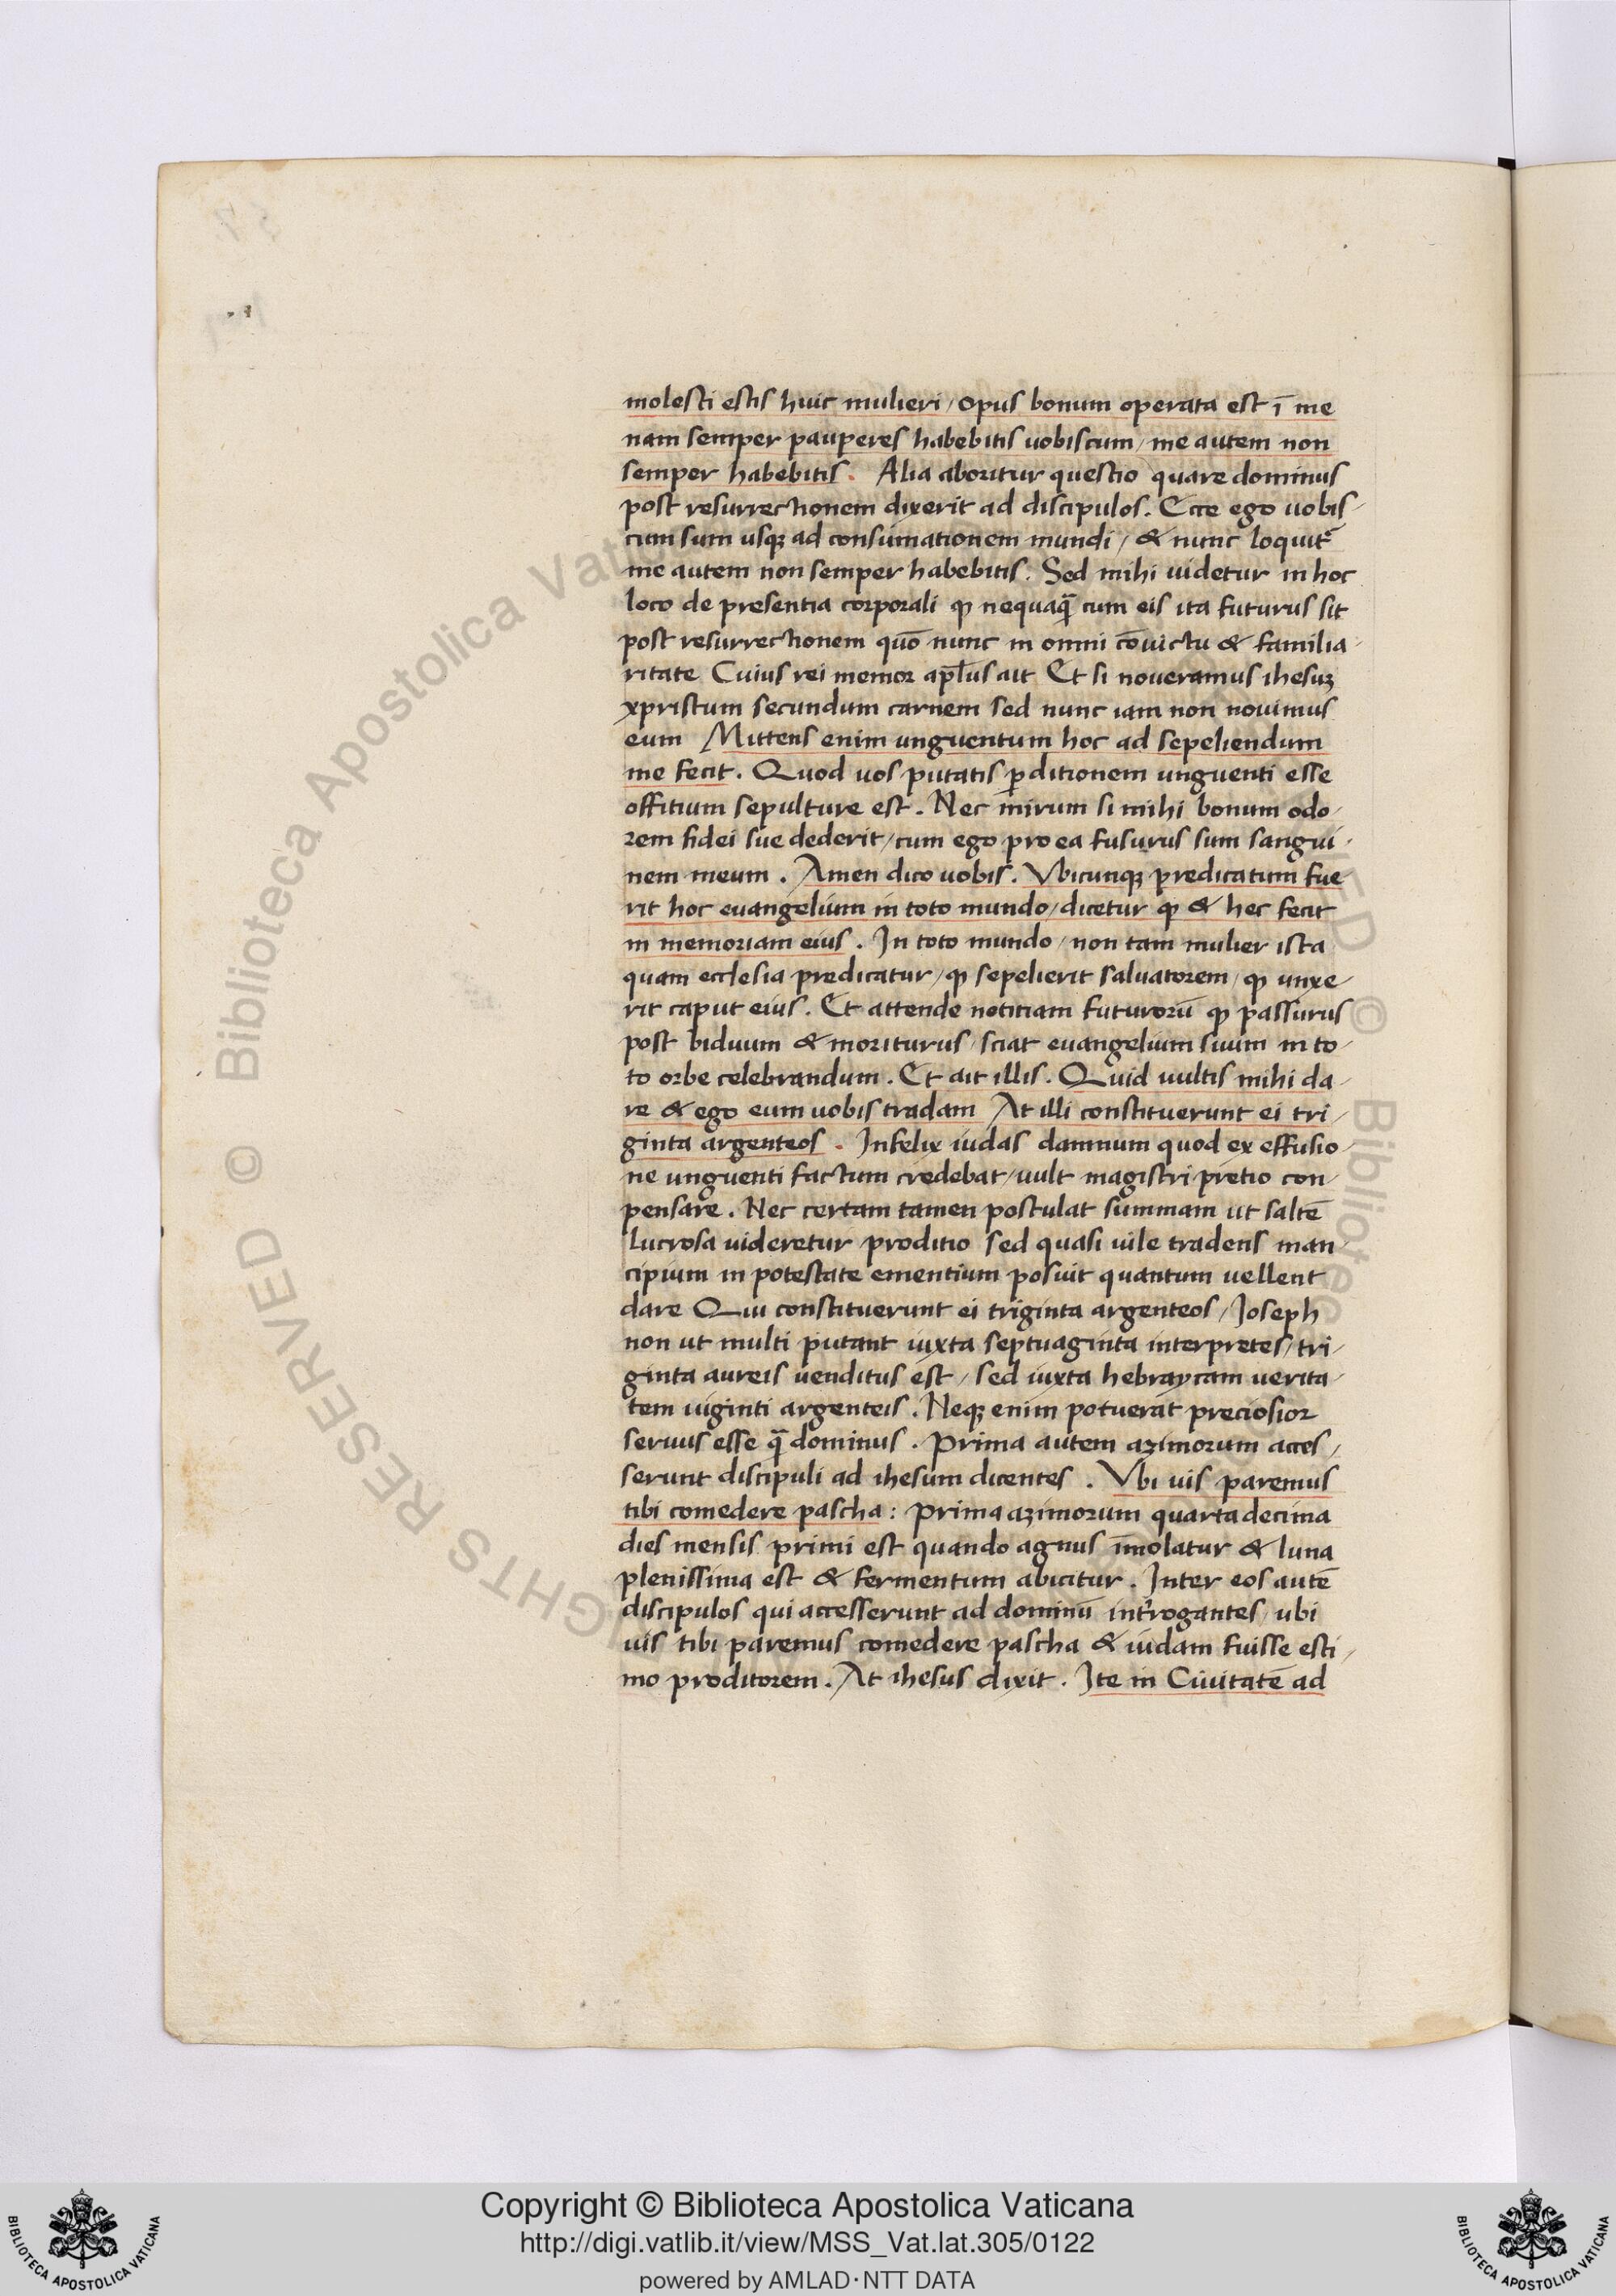 molesti estis huic mulieri / opus bonum operata est ī me
nam semper pauperes habebitis uobiscum / me autem non
semper habebitis . Alia aboritur questio quare dominus
post resurrectionem dixerit ad discipulos . Ecce ego uobis /
cum sum usqꝫ ad consumationem mundi / & nunc loquit᷑
me autem non semper habebitis . Sed mihi uidetur in hoc
loco de presentia corporali ꝙ nequaqᷓ cum eis ita futurus sit
post resurrectionem quō nunc in omni cōuictu & familia /
ritate Cuius rei memor apl̄us ait Et si noueramus ihesuꝫ
xpristum secundum carnem sed nunc iam non nouimus
eum Mittens enim unguentum hoc ad sepeliendum
me fecit . Quod uos putatis ꝑditionem unguenti esse
offitium sepulture est . Nec mirum si mihi bonum odo /
rem fidei sue dederit / cum ego pro ea fusurus sum sangui /
nem meum . Amen dico uobis . Vbicunqꝫ predicatum fue
rit hoc euangelium in toto mundo / dicetur ꝙ & hec fecit
in memoriam eius . In toto mundo / non tam mulier ista
quam ecclesia predicatur / ꝙ sepelierit saluatorem / ꝙ unxe /
rit caput eius . Et attende notitiam futurorū ꝙ passurus
post biduum & moriturus / sciat euangelium suum in to /
to orbe celebrandum . Et ait illis . Quid uultis mihi da /
re & ego eum uobis tradam At illi constituerunt ei tri /
ginta argenteos . Infelix iudas damnum quod ex effusio /
ne unguenti factum credebat / uult magistri pretio con /
pensare . Nec certam tamen postulat summam ut saltē
lucrosa uideretur proditio sed quasi uile tradens man /
cipium in potestate ementium posuit quantum uellent
dare Qui constituerunt ei triginta argenteos / Joseph
non ut multi putant iuxta septuaginta interpretes / tri /
ginta aureis uenditus est / sed iuxta hebraycam uerita /
tem uiginti argenteis . Neqꝫ enim potuerat preciosior
seruus esse qᷓ dominus . Prima autem azimorum acces /
serunt discipuli ad ihesum dicentes . Vbi uis paremus
tibi comedere pascha : Prima azimorum quarta decima
dies mensis primi est quando agnus īmolatur & luna
plenissima est & fermentum abicitur . Inter eos autē
discipulos qui accesserunt ad dominū int̉rogantes / ubi
uis tibi paremus comedere pascha & iudam fuisse esti /
mo proditorem . At ihesus dixit . Ite in Ciuitatē ad
© Biblioteca Apostolica Vaticana
RIGHTS RESERVED
Copyright © Biblioteca Apostolica Vaticana
http://digi.vatlib.it/view/MSS_Vat.lat.305/0122
powered by AMLAD·NTT DATA
BIBLIOTECA APOSTOLICA VATICANA
BIBLIOTECA APOSTOLICA VATICANA